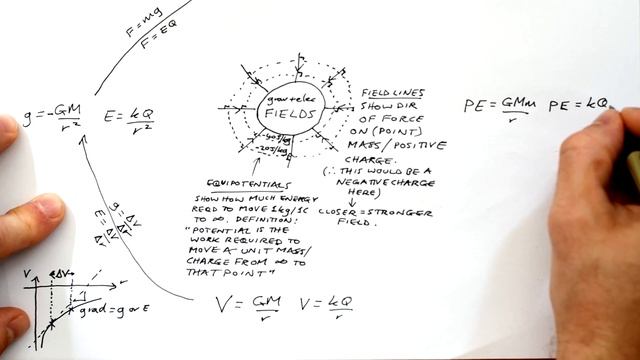 F = mg
F = EQ
g = -GM/r² E = kQ/r²
grav + elec
FIELDS
-40J/kg
-20J/kg
FIELD LINES
SHOW DIR
OF FORCE
ON (POINT)
MASS/POSITIVE
CHARGE.
(∴ THIS WOULD BE A
NEGATIVE CHARGE
HERE)
↓
CLOSER = STRONGER
FIELD.
PE = GMm/r PE = kQ
EQUIPOTENTIALS
SHOW HOW MUCH ENERGY
REQD TO MOVE 1kg/1C
TO ∞. DEFINITION:
"POTENTIAL IS THE
WORK REQUIRED TO
MOVE A UNIT MASS/
CHARGE FROM ∞ TO
THAT POINT"
g = ΔV/Δr
E = ΔV/Δr
V
ΔV
r
grad = g or E
V = GM/r V = kQ/r